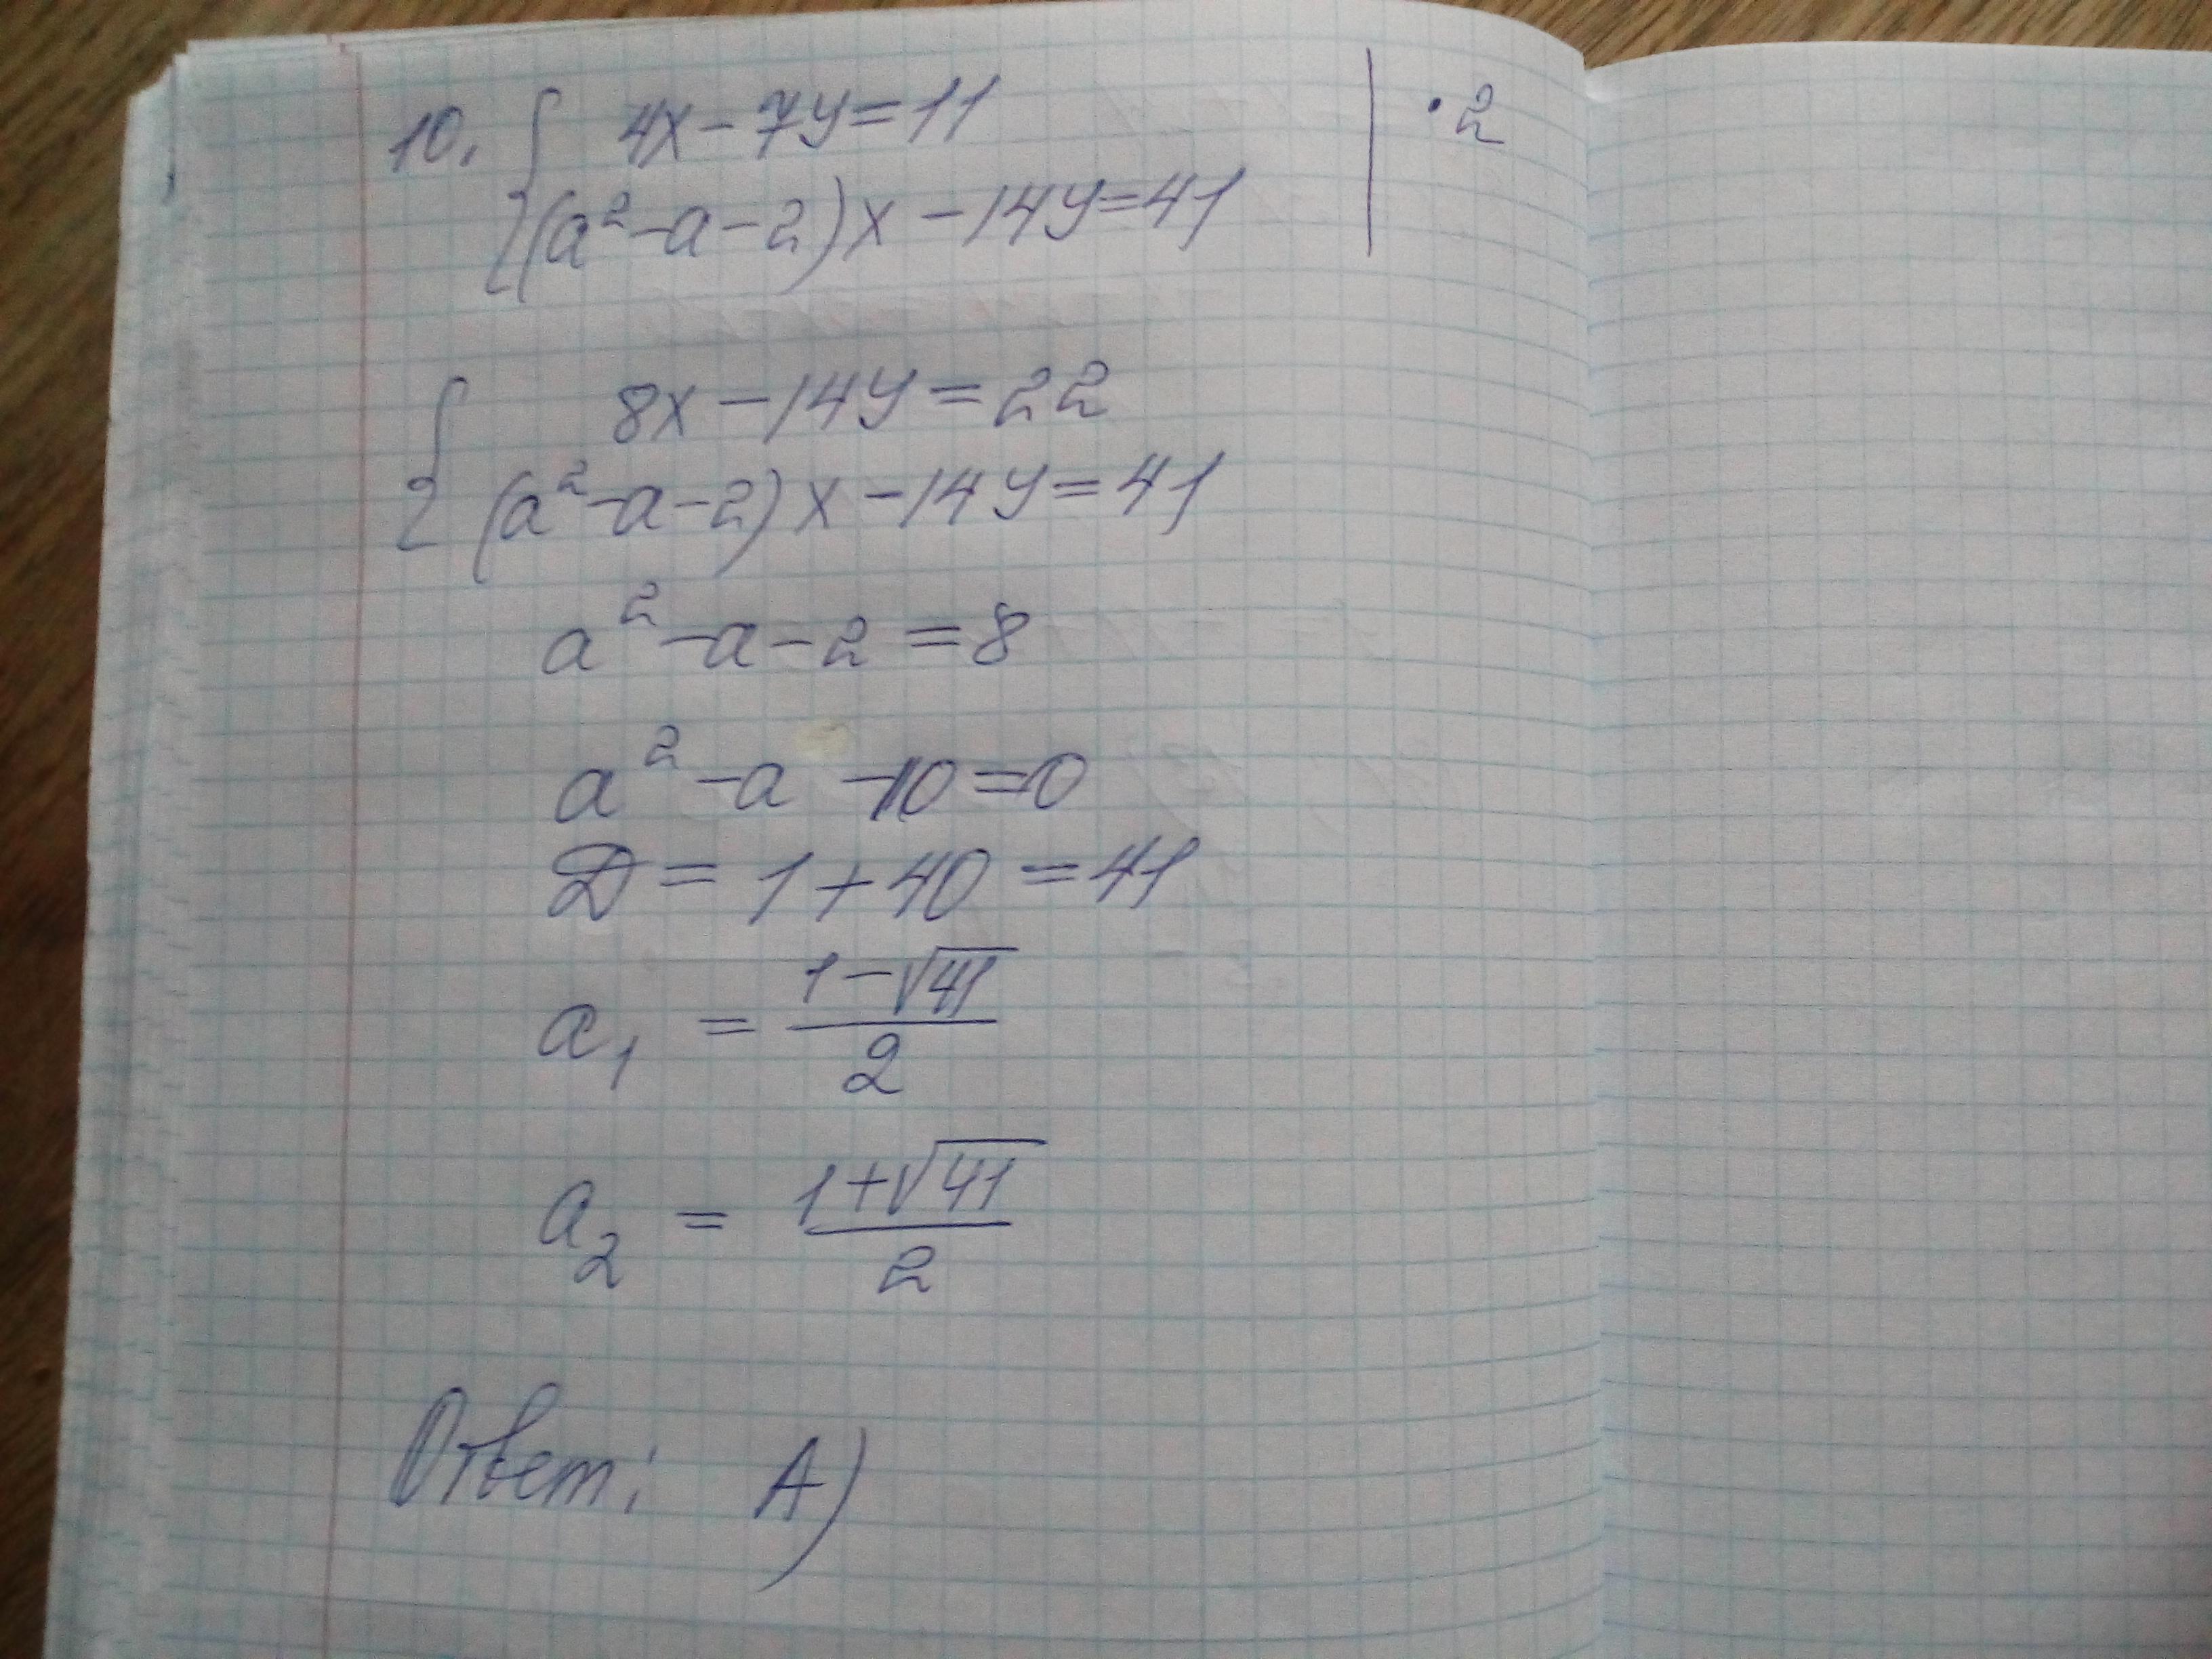 10. { 4x - 7y = 11 | · 2
(a² - a - 2)x - 14y = 41
{ 8x - 14y = 22
(a² - a - 2)x - 14y = 41
a² - a - 2 = 8
a² - a - 10 = 0
D = 1 + 40 = 41
a₁ = (1 - √41)/2
a₂ = (1 + √41)/2
Ответ: А)